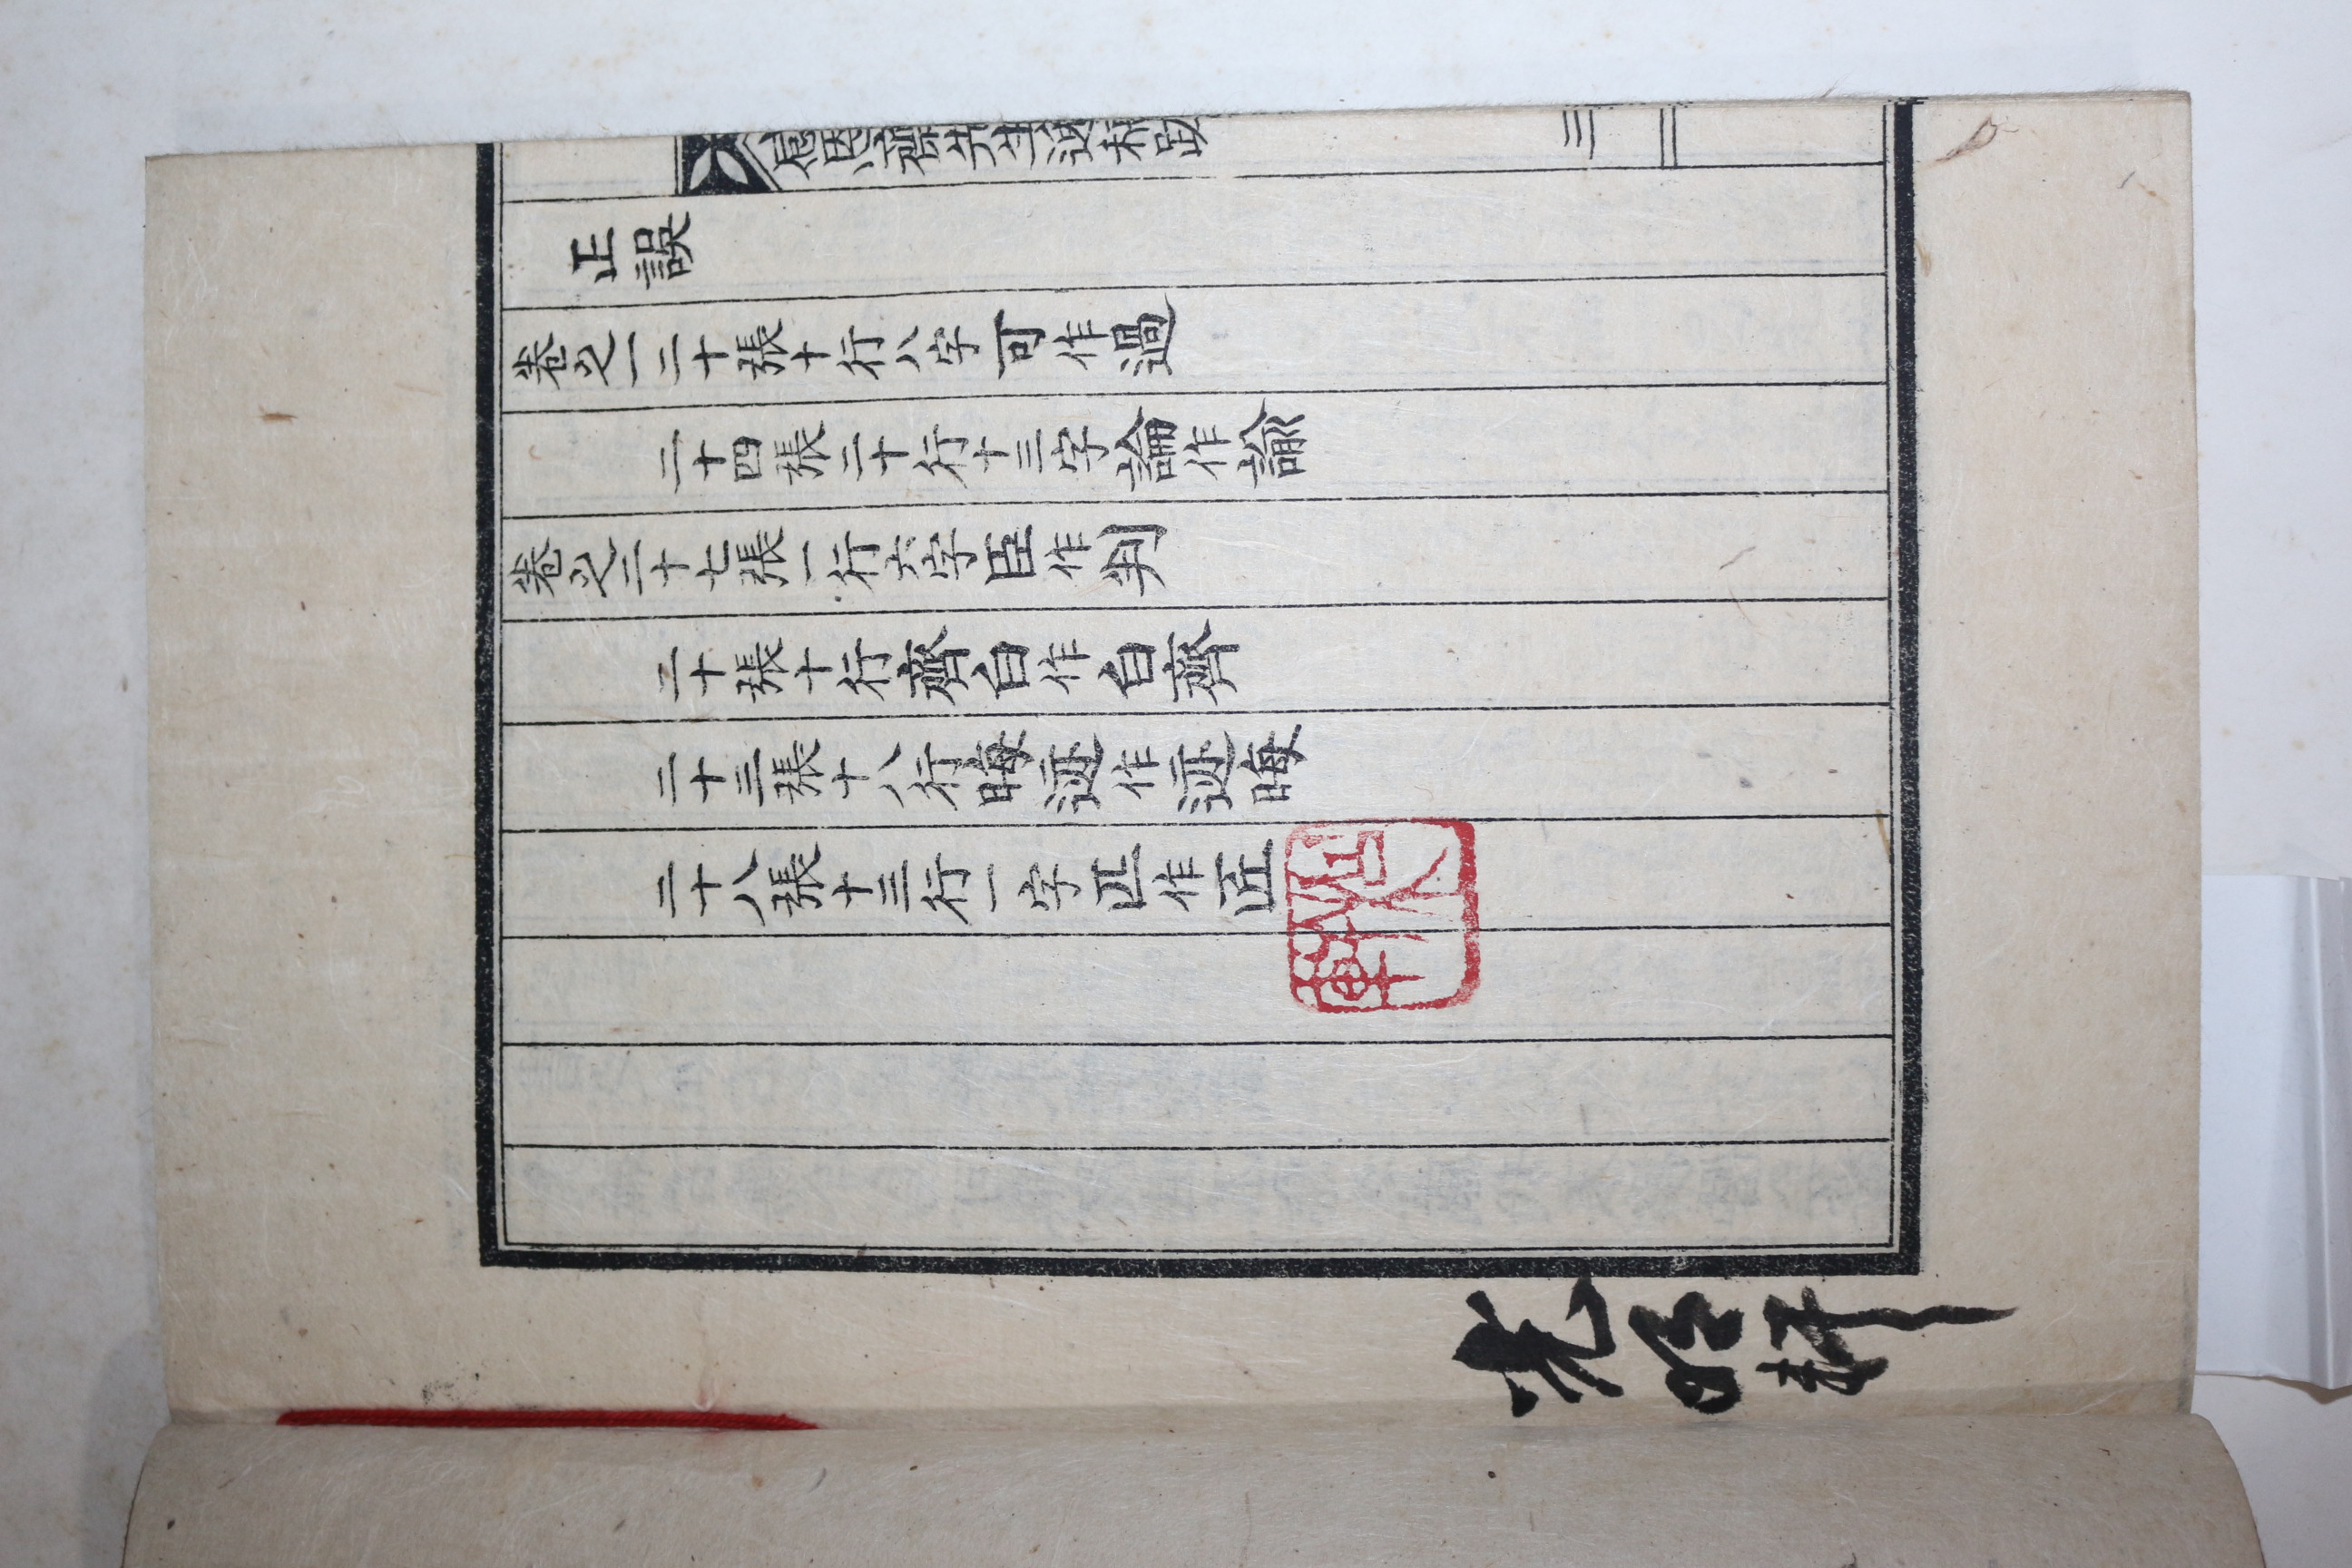 先生逸稿跋
三
正誤
卷之一二十張十行八字可作過
二十四張二十行十三字論作諭
卷之二十七張一行六字臣作判
二十張十行齊白作白齊
二十三張十八行晦迹作迹晦
二十八張十三行一字匹作匠
軒
光明軒